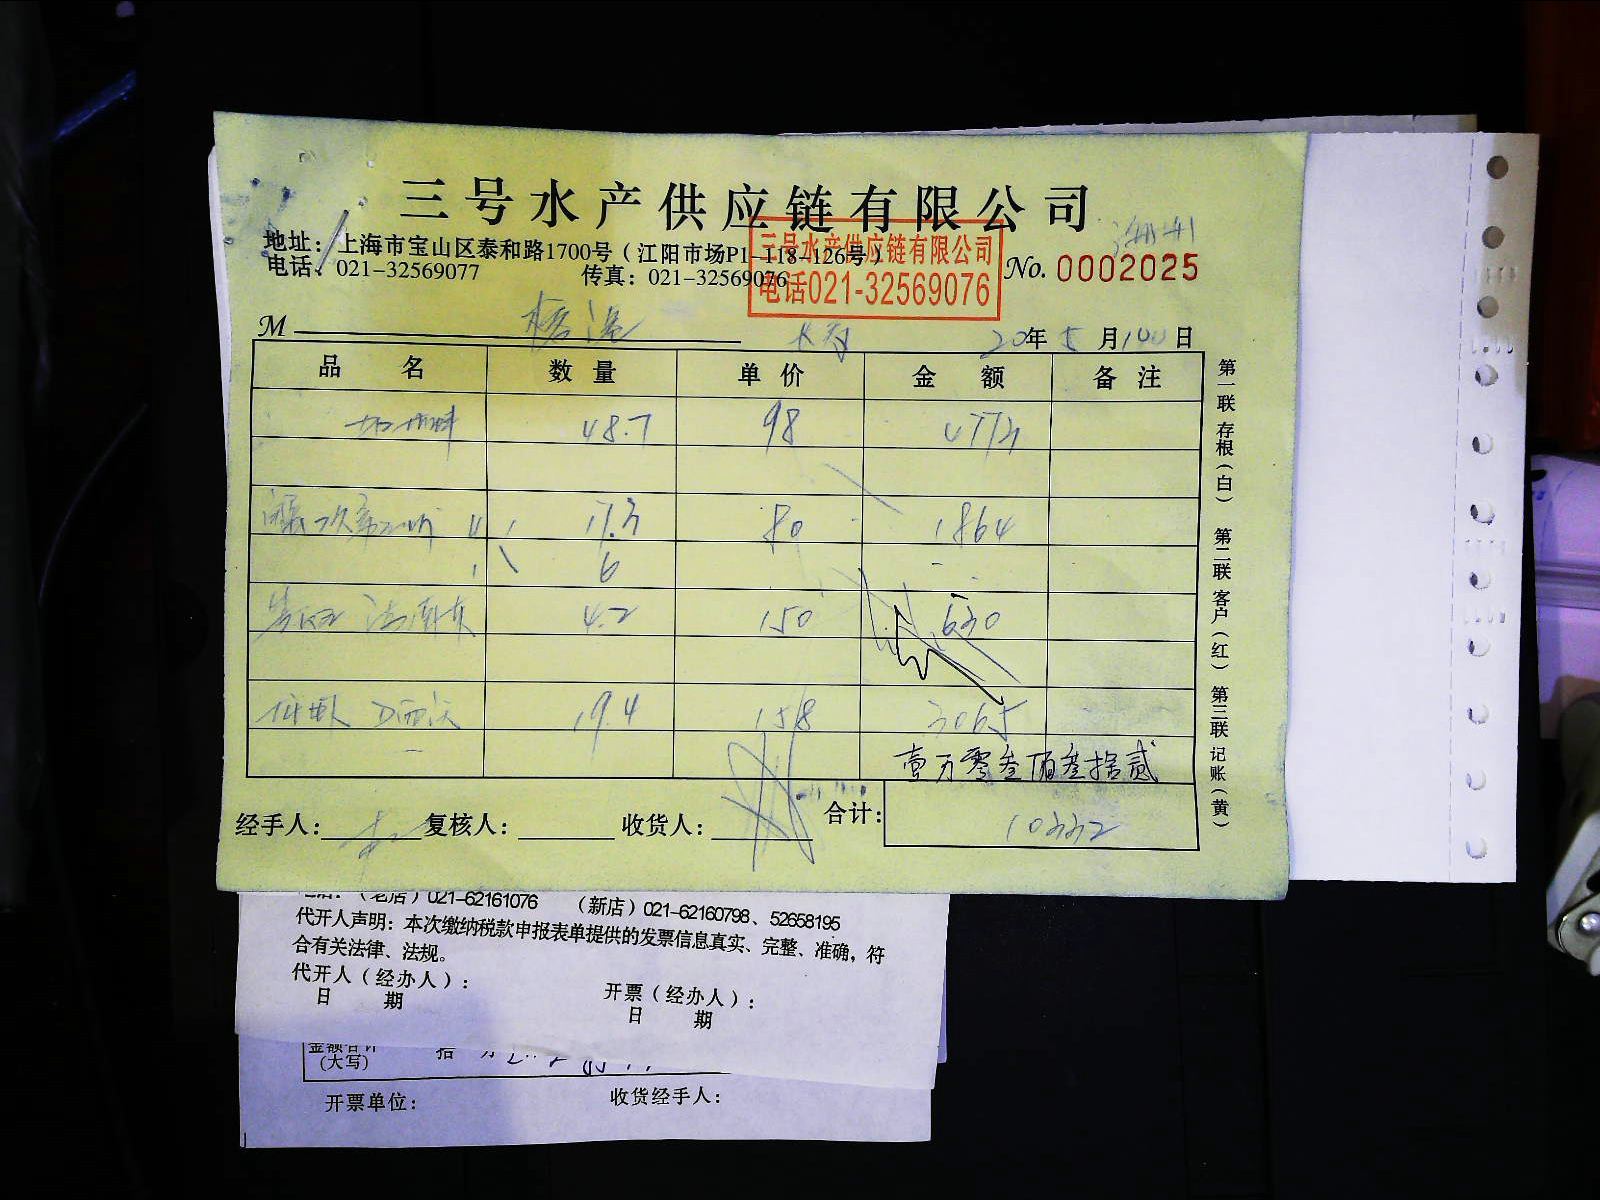 三号水产供应链有限公司
地址：上海市宝山区泰和路1700号（江阳市场P1-118-126号）
电话：021-32569077 传真：021-32569076
三号水产供应链有限公司
电话021-32569076
No. 0002025
M
20年5月10日
品名 数量 单价 金额 备注
48.7 98 4773
17.3 80 1864
6
4.2 150 630
19.4 158 3065
壹万零叁佰叁拾贰
经手人： 复核人： 收货人： 合计： 10332
第一联存根（白） 第二联客户（红） 第三联记账（黄）
（老店）021-62161076 （新店）021-62160798、52658195
代开人声明：本次缴纳税款申报表单提供的发票信息真实、完整、准确，符
合有关法律、法规。
代开人（经办人）： 开票（经办人）：
日期 日期
金额合计 拾 万
(大写)
开票单位： 收货经手人：